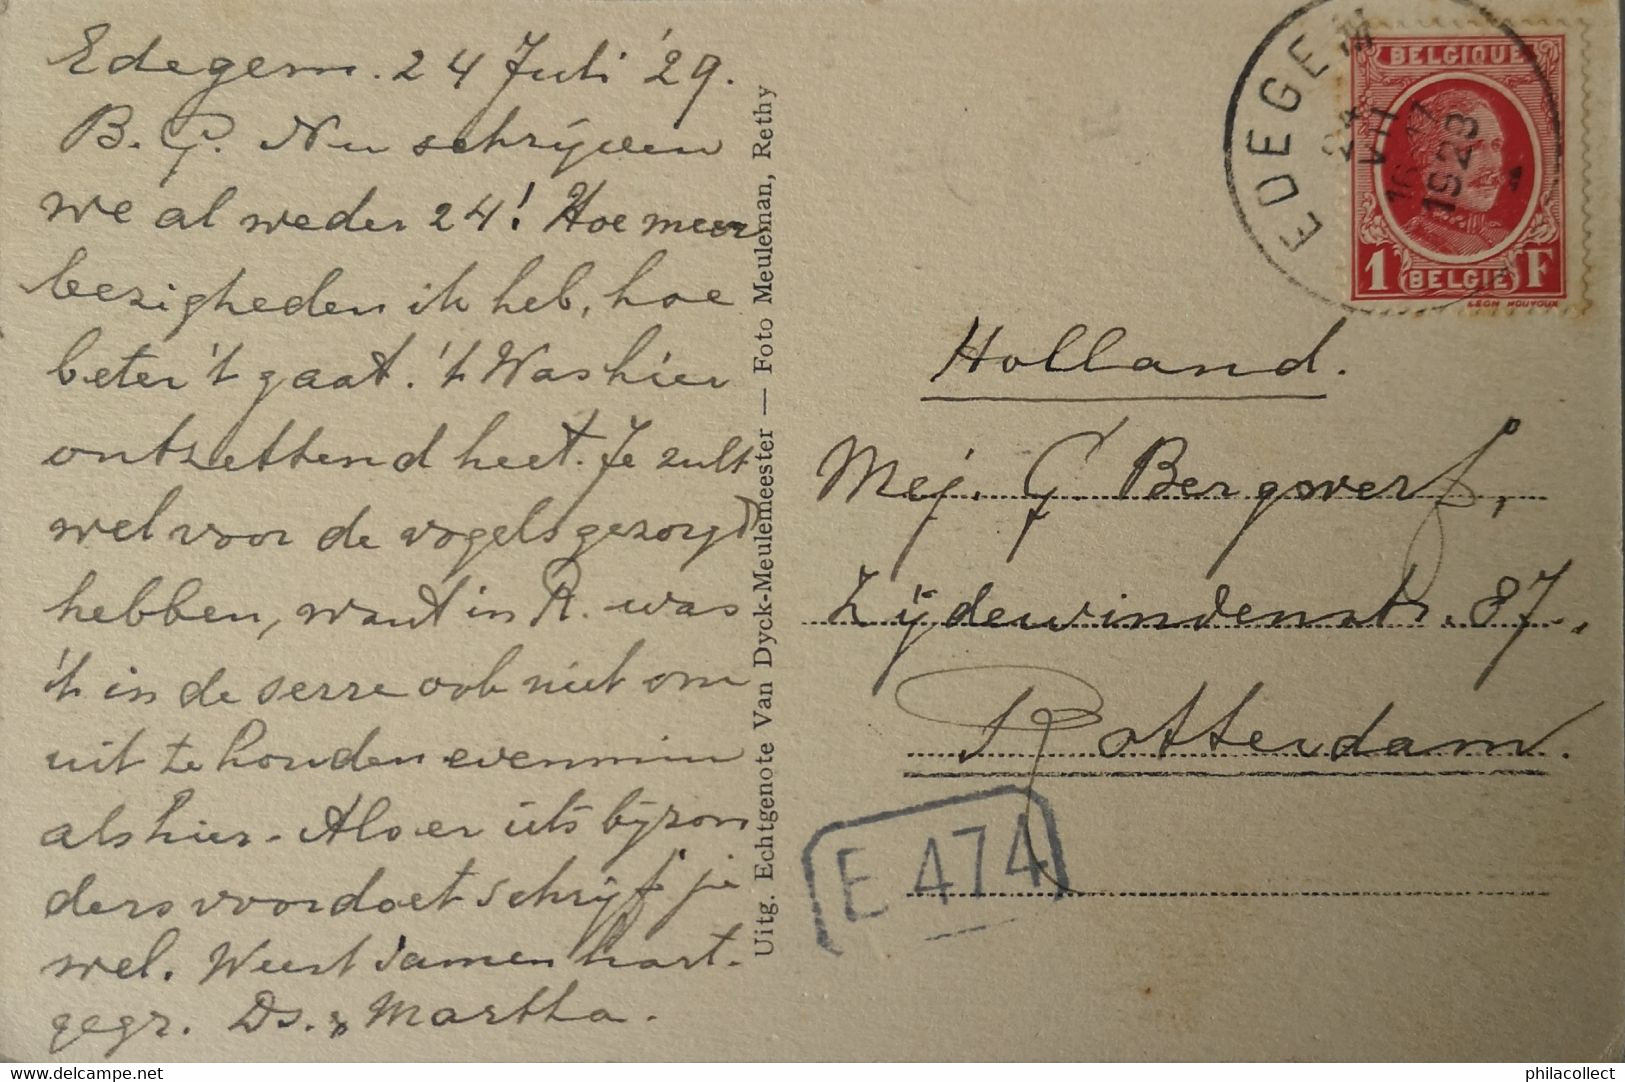 Edegem. 24 Juli '29.
B. G. Nu schrijven
we al weder 24! Hoe meer
bezigheden ik heb, hoe
beter 't gaat. 't Was hier
ontzettend heet. Je zult
wel voor de vogels gezorgd
hebben, want in R. was
't in de serre ook niet om
uit te houden evenmin
als hier. Als er iets bijzon
ders voordoet schrijf je
wel. Weest samen hart.
gegr. Ds. & Martha.
Uitg. Echtgenote Van Dyck-Meulemeester — Foto Meuleman, Rethy
EDEGEM
24
VII
16 17
1923
BELGIQUE
1 BELGIË F
LEON HOUYOUX
Holland.
Mej. G. Bergwerf,
Zijdewindenstr. 87.,
Rotterdam.
E 474
delcampe.net
philacollect